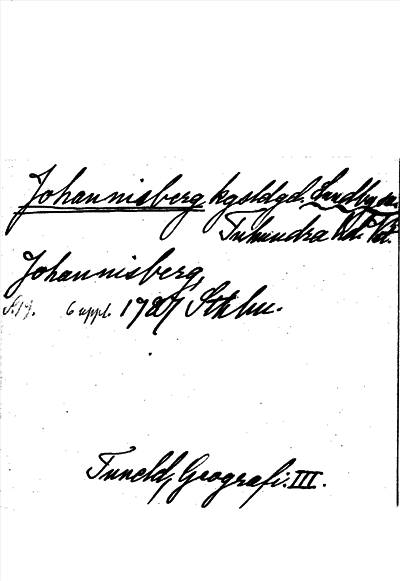 Johannisberg, kgsldgd. Lundby sn.
Tuhundra hd. Vstm.
Johannisberg,
S. 17. 6 uppl. 1787 Sthlm.
Tuneld, Geografi. III.